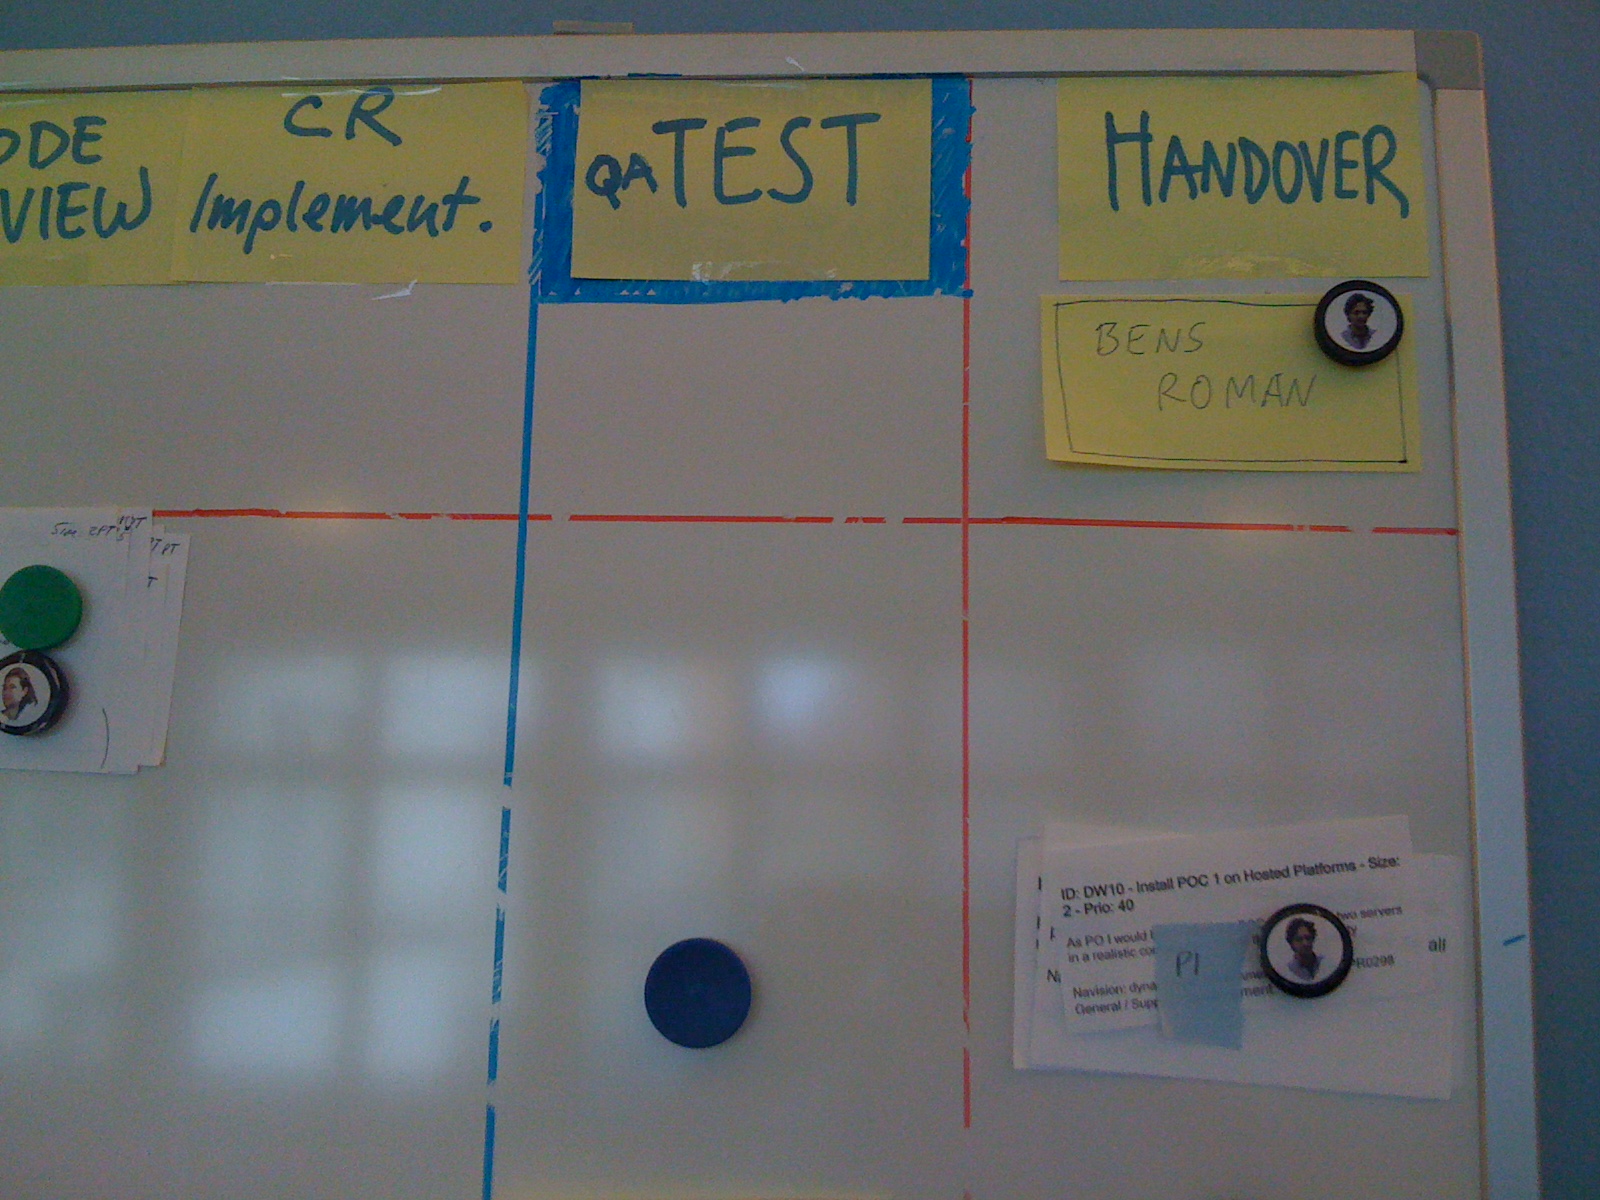 ODE
VIEW
CR
Implement.
QA TEST
HANDOVER
BENS
ROMAN
PT
ID: DW10 - Install POC 1 on Hosted Platforms - Size:
2 - Prio: 40
As PO I would two servers
in a realistic
PI
all
R0298
Navision:
General /